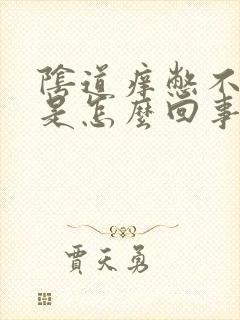 陰道痒憋不
是怎麼回事
賈天勇